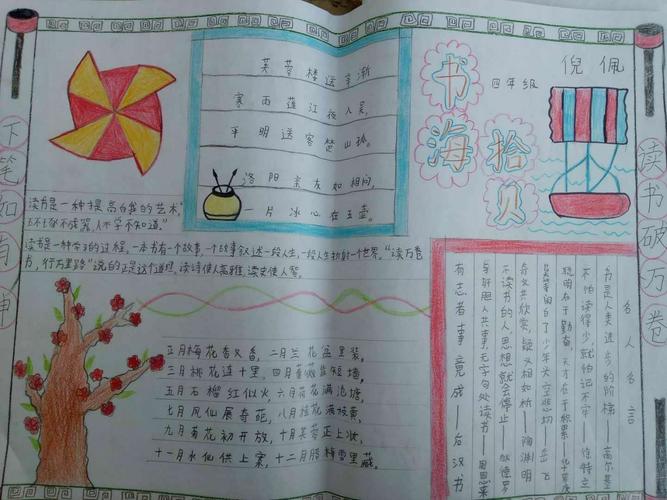 书海拾贝
四年级 倪佩
读书破万卷
下笔如有神
芙蓉楼送辛渐
寒雨莲江夜入吴,
平明送客楚山孤。
洛阳亲友如相问,
一片冰心在玉壶。
读书是一种提高自我的艺术,
"玉不琢不成器,人不学不知道。"
读书是一种学习的过程。一本书有一个故事,一个故事叙述一段人生,一段人生折射一个世界。"读万卷
书,行万里路"说的正是这个道理。读诗使人高雅,读史使人智。
正月梅花香又香,二月兰花盆里装。
三月桃花连十里,四月蔷薇靠短墙。
五月石榴红似火,六月荷花满池塘。
七月凤仙展奇葩,八月桂花满枝黄。
九月菊花初开放,十月芙蓉正上妆。
十一月水仙供上案,十二月腊梅雪里藏。
名人名言
书是人类进步的阶梯——高尔基
不怕读得少,就怕记不牢——徐特立
聪明在于勤奋,天才在于积累——华罗庚
莫等闲白了少年头空悲切——岳飞
奇文共欣赏,疑义相如析——陶渊明
不读书的人,思想就会停止——狄德罗
与好照人共事,无字句处读书——周恩来
有志者事竟成——后汉书